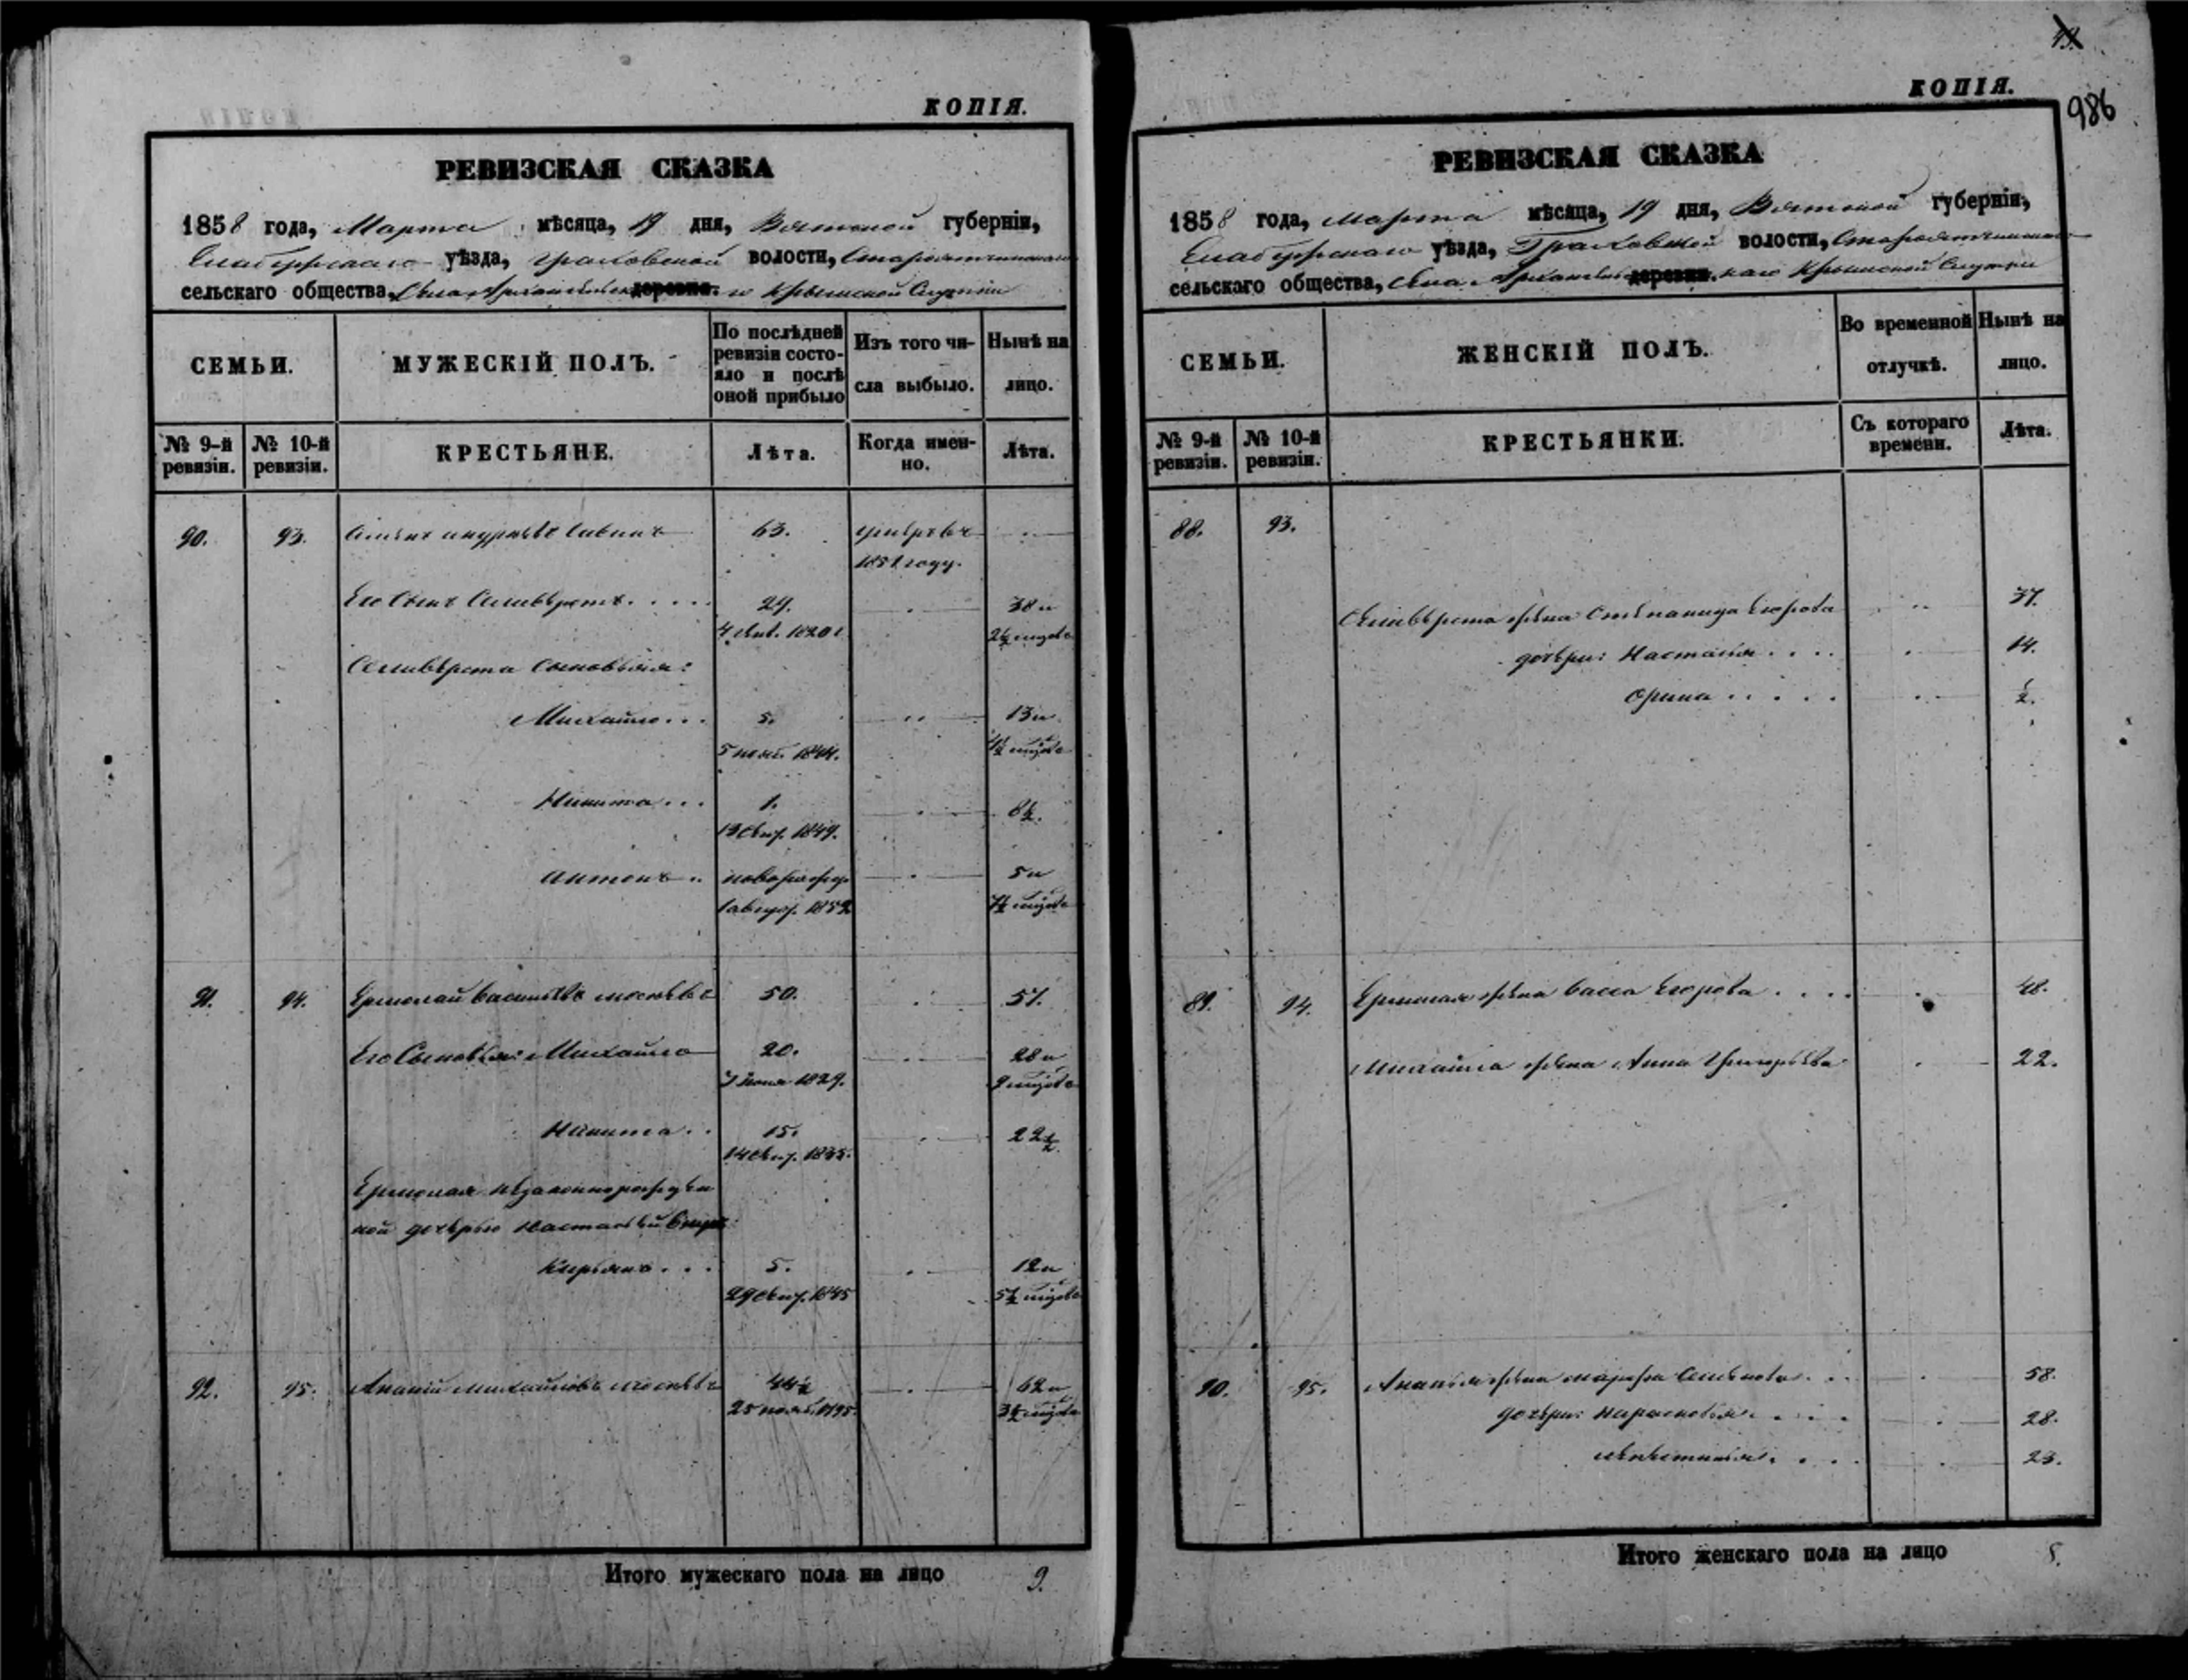 КОПІЯ.
РЕВИЗСКАЯ СКАЗКА
1858 года, Марта мѣсяца, 19 дня, Вятской губерніи,
Елабужскаго уѣзда, Граховской волости,
сельскаго общества, Села деревни. Крымской Слудки
СЕМЬИ.
МУЖЕСКІЙ ПОЛЪ.
По послѣдней ревизіи состояло и послѣ оной прибыло
Изъ того числа выбыло.
Нынѣ на лицо.
№ 9-й ревизіи.
№ 10-й ревизіи.
КРЕСТЬЯНЕ.
Лѣта.
Когда именно.
Лѣта.
90. 93. 63. умеръ въ
1851 году.
Его Сынъ Селивѣрстъ 29. 38 и
1820
Селивѣрста Сыновья:
Михайло 5. 13 и
5 нояб. 1844. 4½
Никита 1. 8½.
13 сент. 1849.
Антонъ новорожд. 5 и
1 авгус. 1852 7½
91. 94. Ермолай Васильевъ 50. 57.
Его Сыновья: Михайло 20. 28 и
Іюня 1829. 9
Никита 15. 22½
14 сент. 1835.
Ермолая незаконнорожден
ной дочерью Настасьи
Кирьянъ 5. 12 и
29 сент. 1845 5½
92. 95. Ананій Михайловъ 62 и
25 нояб. 1795. 3½
Итого мужескаго пола на лицо 9.
КОПІЯ.
986
РЕВИЗСКАЯ СКАЗКА
1858 года, Марта мѣсяца, 19 дня, Вятской губерніи,
Елабужскаго уѣзда, Граховской волости,
сельскаго общества, Села деревни. Крымской Слудки
СЕМЬИ.
ЖЕНСКІЙ ПОЛЪ.
Во временной отлучкѣ.
Нынѣ на лицо.
№ 9-й ревизіи.
№ 10-й ревизіи.
КРЕСТЬЯНКИ.
Съ котораго времени.
Лѣта.
88. 93.
Селивѣрста жена Степанида Егорова 37.
дочери: Настасья 14.
Орина ½.
89. 94. Ермолая жена Васса Егорова 48.
Михайла жена Анна Григорьева 22.
90. 95. Ананья жена Марфа Семенова 58.
дочери: 28.
23.
Итого женскаго пола на лицо 8.